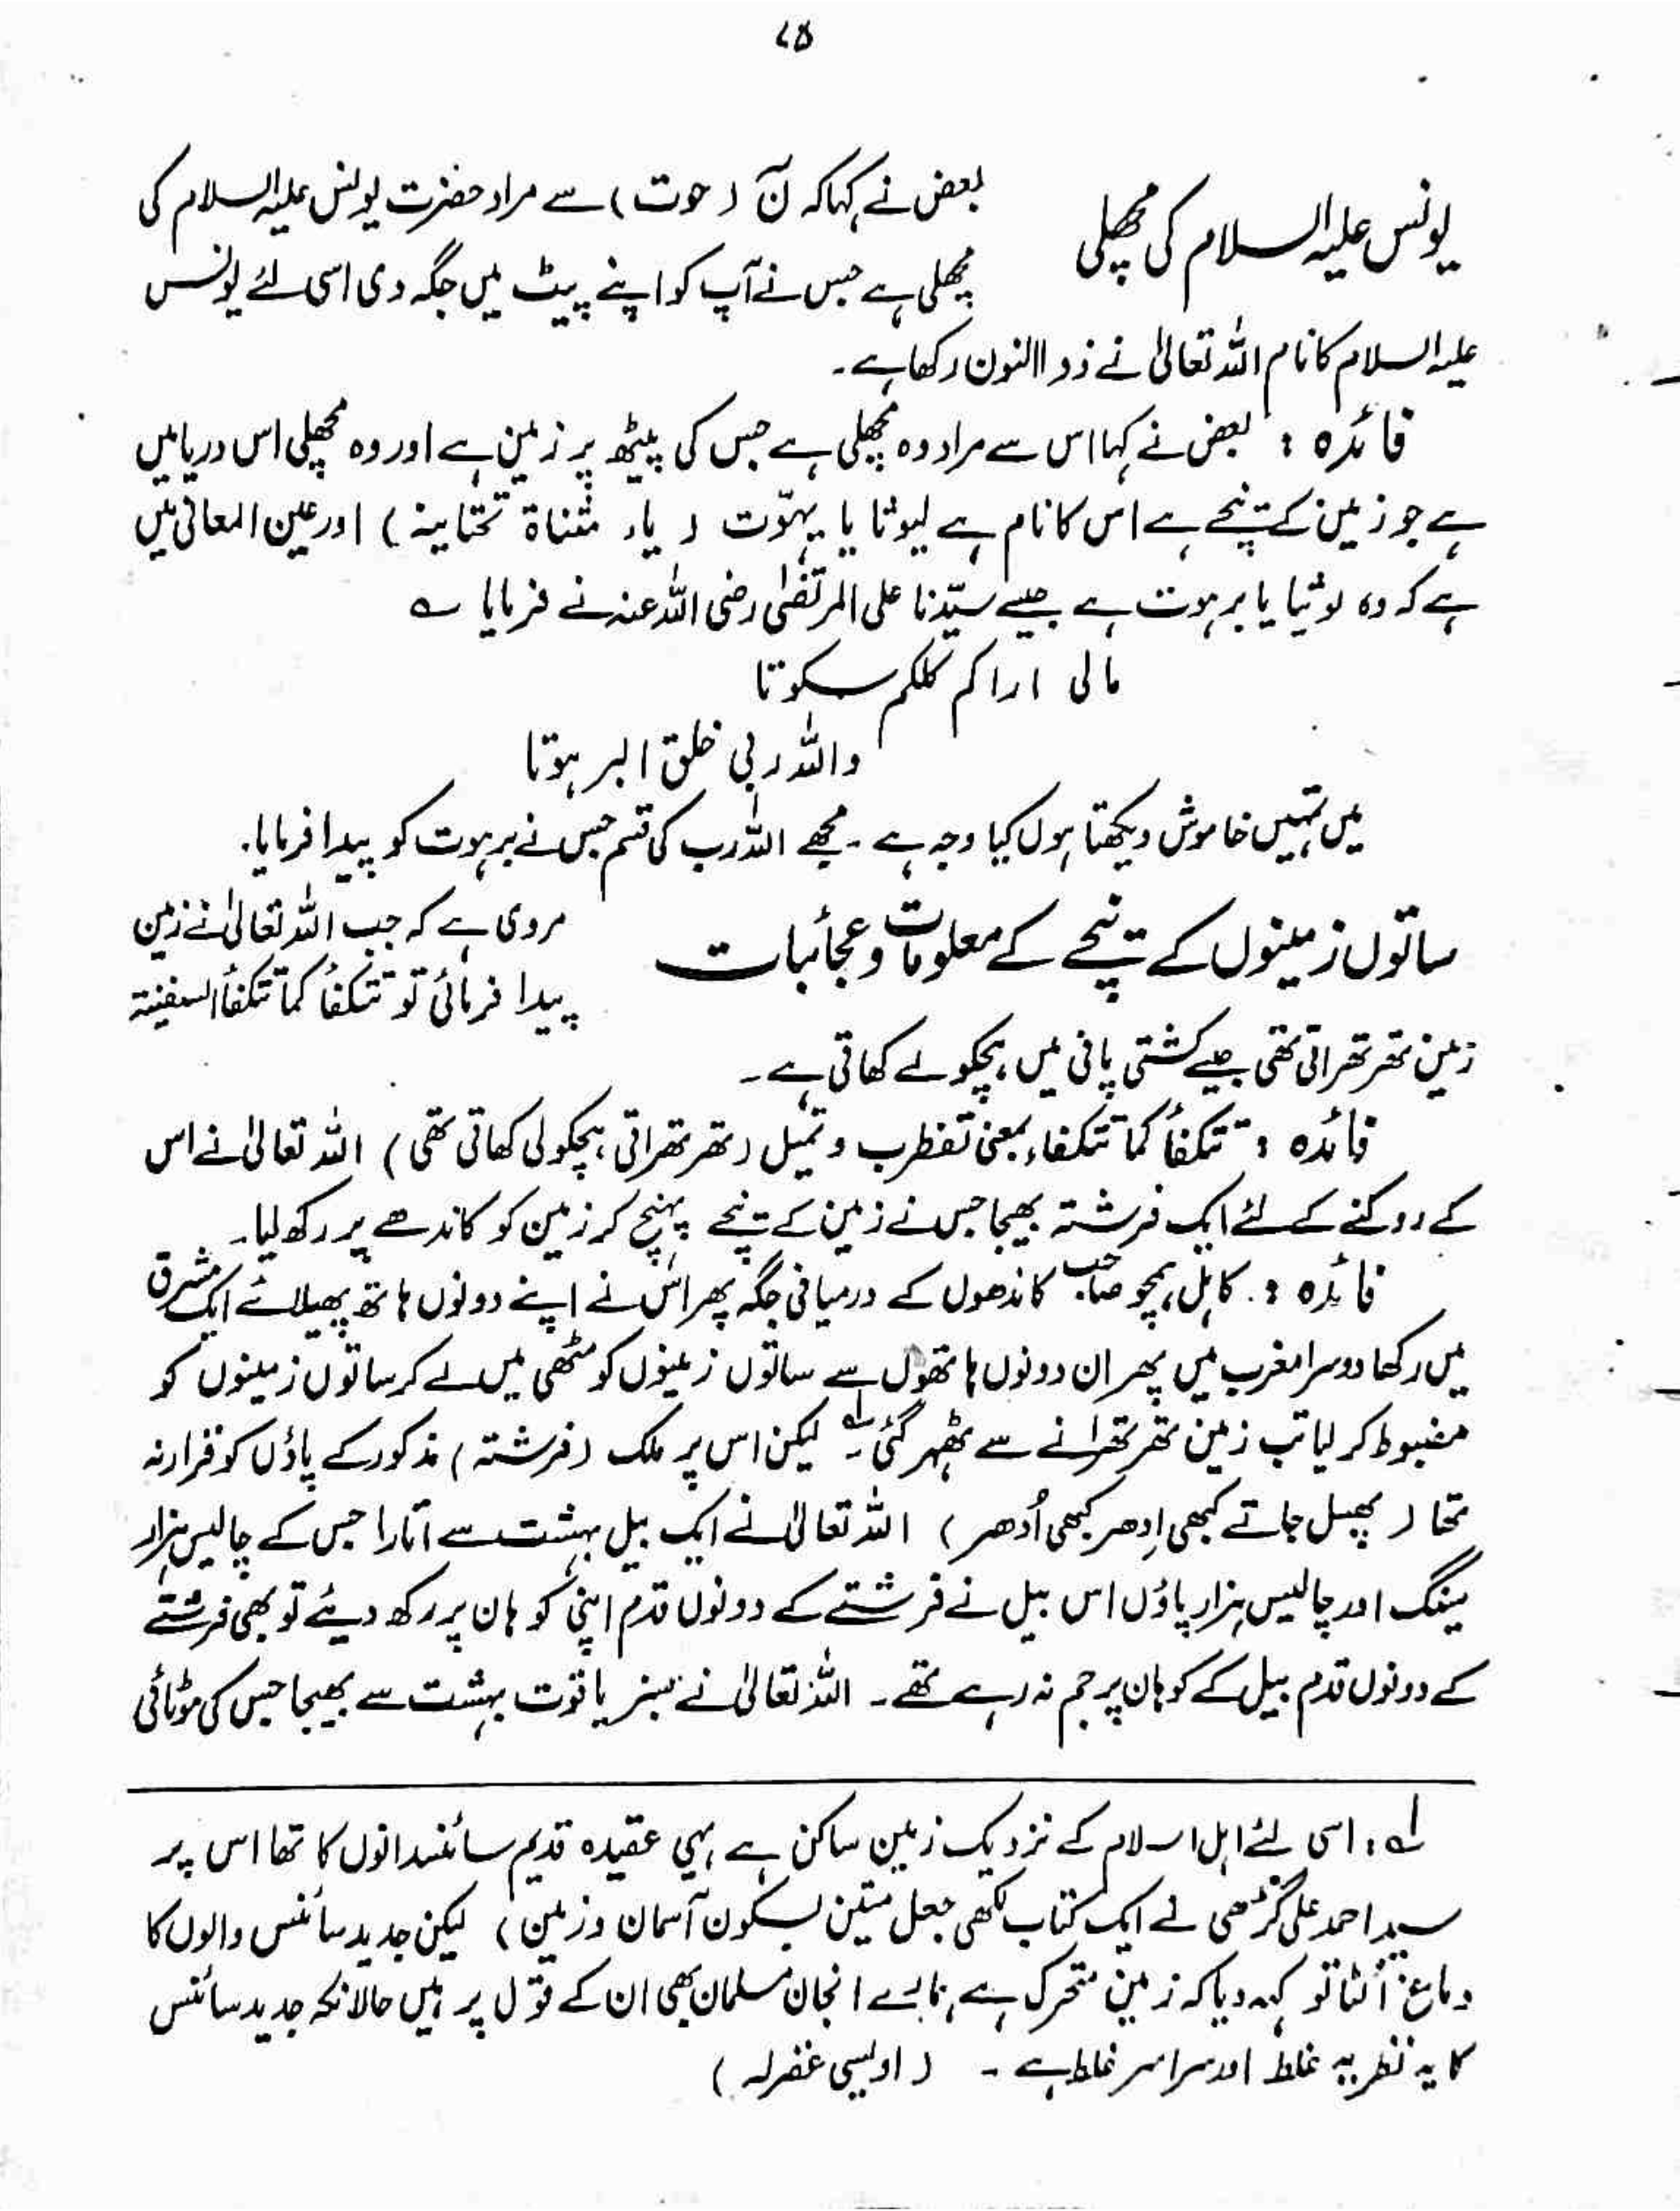 ۷۵
یونس علیہ السلام کی مچھلی
بعض نے کہا کہ نٓ (حوت) سے مراد حضرت یونس علیہ السلام کی
مچھلی ہے جس نے آپ کو اپنے پیٹ میں جگہ دی اسی لئے یونس
علیہ السلام کا نام اللہ تعالیٰ نے ذو االنون رکھا ہے۔
فائدہ : بعض نے کہا اس سے مراد وہ مچھلی ہے جس کی پیٹھ پر زمین ہے اور وہ مچھلی اس دریا میں
ہے جو زمین کے نیچے ہے اس کا نام ہے لیوثا یا یہموت ( یاء مثناۃ تحتانیہ ) اور عین المعانی میں
ہے کہ وہ لوثیا یا برہوت ہے جیسے سیّدنا علی المرتضیٰ رضی اللہ عنہ نے فرمایا ؎
مالی اراکم کلکم سکوتا
واللہ ربی خلق البرہوتا
میں تمہیں خاموش دیکھتا ہوں کیا وجہ ہے ۔ مجھے اللہ رب کی قسم جس نے برہوت کو پیدا فرمایا۔
ساتوں زمینوں کے نیچے کے معلومات و عجائبات
مروی ہے کہ جب اللہ تعالیٰ نے زمین
پیدا فرمائی تو تتکفأ کما تتکفأ السفینۃ
زمین تھرتھراتی تھی جیسے کشتی پانی میں ہچکولے کھاتی ہے ۔
فائدہ : تتکفأ کما تتکفاء بمعنی تضطرب و تمیل (تھرتھراتی ، ہچکولی کھاتی تھی) اللہ تعالیٰ نے اس
کے روکنے کے لئے ایک فرشتہ بھیجا جس نے زمین کے نیچے پہنچ کر زمین کو کاندھے پر رکھ لیا۔
فائدہ :۔ کاہل ، ہمچو صاحب کاندھوں کے درمیانی جگہ پھر اس نے اپنے دونوں ہاتھ پھیلائے ایک مشرق
میں رکھا دوسرا مغرب میں پھر ان دونوں ہاتھوں سے ساتوں زمینوں کو مٹھی میں لے کر ساتوں زمینوں کو
مضبوط کر لیا تب زمین تھرتھرانے سے ٹھہر گئی۔ لہ لیکن اس پر ملک (فرشتہ) مذکور کے پاؤں کو قرار نہ
تھا ( پھسل جاتے کبھی اِدھر کبھی اُدھر ) اللہ تعالیٰ نے ایک بیل بہشت سے اتارا جس کے چالیس ہزار
سینگ اور چالیس ہزار پاؤں اس بیل نے فرشتے کے دونوں قدم اپنی کوہان پر رکھ دیئے تو بھی فرشتے
کے دونوں قدم بیل کے کوہان پر جم نہ رہے تھے ۔ اللہ تعالیٰ نے سبز یاقوت بہشت سے بھیجا جس کی موٹائی
لہ : اسی لئے اہل اسلام کے نزدیک زمین ساکن ہے یہی عقیدہ قدیم سائنسدانوں کا تھا اس پر
سید احمد علی گڑھی نے ایک کتاب لکھی جعل متین بسکون آسمان و زمین) لیکن جدید سائنس والوں کا
دماغ اُلٹا تو کہہ دیا کہ زمین متحرک ہے ہمارے انجان مسلمان بھی ان کے قول پر ہیں حالانکہ جدید سائنس
کا یہ نظریہ غلط اور سراسر غلط ہے ۔ ( اویسی غفرلہ )